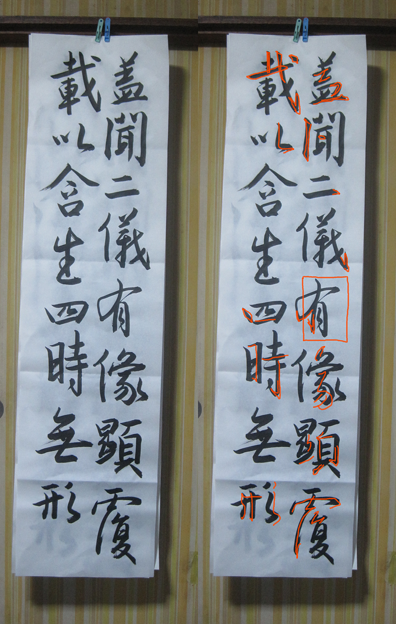 蓋聞二儀有像顯覆
載以含生四時無形
蓋聞二儀有像顯覆
載以含生四時無形